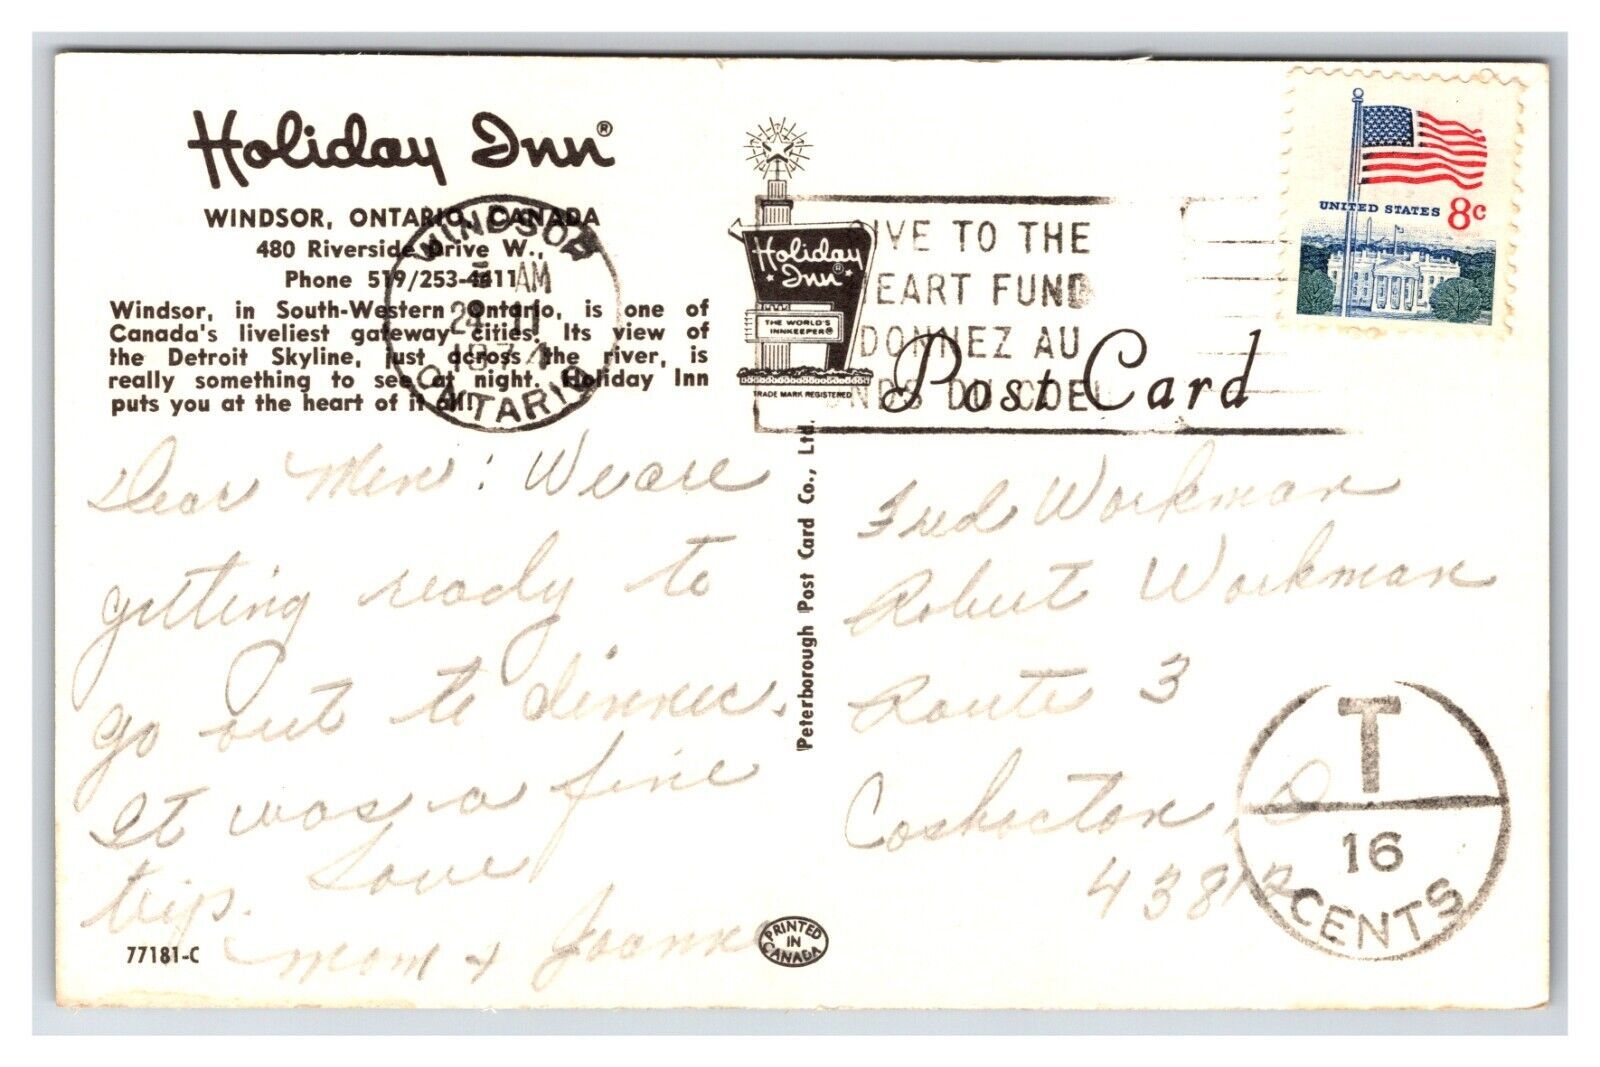 Holiday Inn®
WINDSOR, ONTARIO, CANADA
480 Riverside Drive W.,
Phone 519/253-4411
Windsor, in South-Western Ontario, is one of
Canada's liveliest gateway cities. Its view of
the Detroit Skyline, just across the river, is
really something to see at night. Holiday Inn
puts you at the heart of it all!
WINDSOR
AM
1974
ONTARIO
Holiday
Inn®
THE WORLD'S
INNKEEPER®
TRADE MARK REGISTERED
IVE TO THE
EART FUND
DONNEZ AU
NDS DU COE
Post Card
UNITED STATES 8c
Dear Men: We are
getting ready to
go out to dinner.
It was a fine
trip. Love
Mom & Joann
77181-C
Peterborough Post Card Co., Ltd.
PRINTED
IN
CANADA
Fred Workman
Robert Workman
Route 3
Coshocton, O
43812
T
16
CENTS